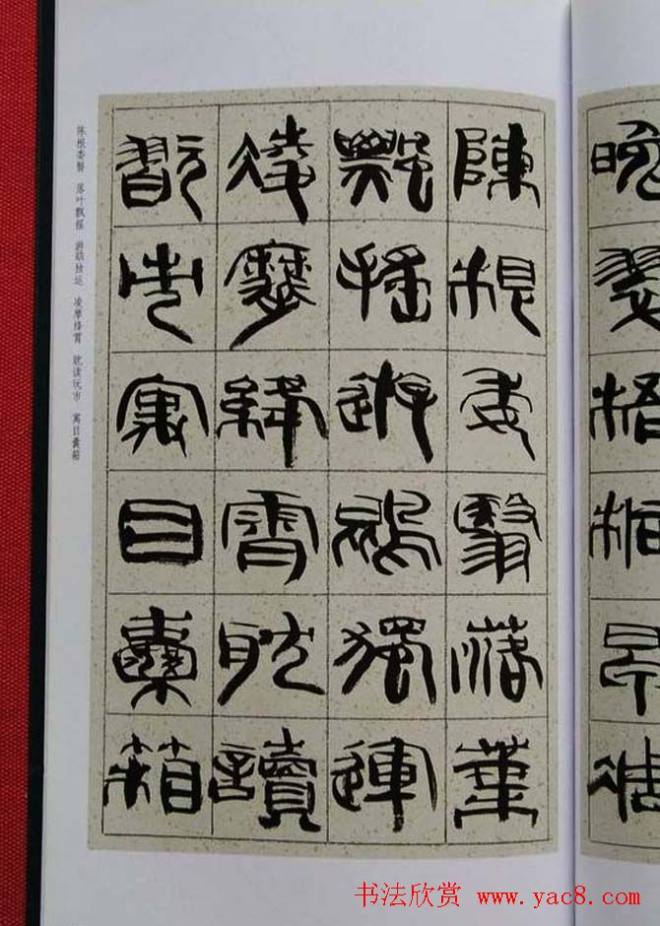 晚翠梧桐早凋
陳根委翳落葉
飄搖遊鵾獨運
凌摩絳霄耽讀
翫市寓目囊箱
陈根委翳 落叶飘摇 游鹍独运 凌摩绛霄 耽读玩市 寓目囊箱
书法欣赏 www.yac8.com